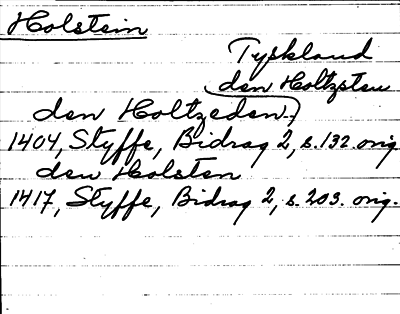 Holstein
Tyskland
den Holtzsten
den Holtzeden.
1404, Styffe, Bidrag 2, s. 132. orig.
den Holsten
1417, Styffe, Bidrag 2, s. 203. orig.